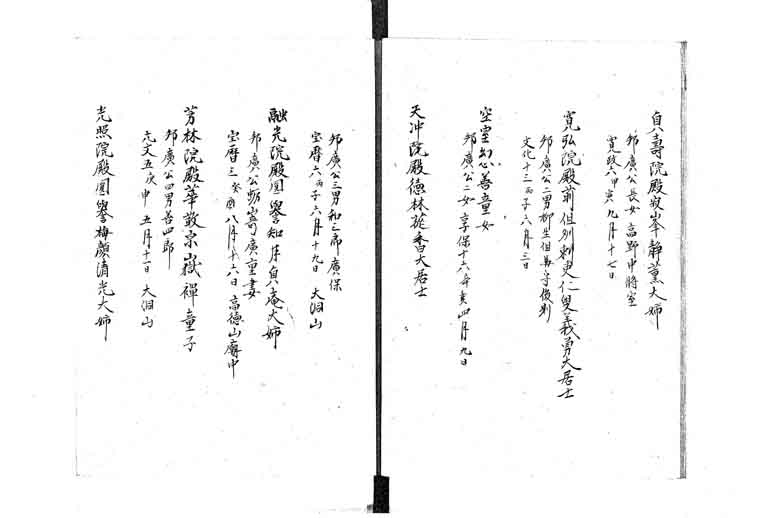 貞壽院殿寂峯静薫大姉
邦廣公長女高野中将室
寛政六甲寅九月十七日
寛弘院殿前但州刺史仁叟義勇大居士
邦廣公二男柳生但馬守俊則
文化十三丙子六月三日
空室幻心善童女
邦廣公二女 享保十六辛亥四月九日
天冲院殿德林 香大居士
邦廣公三男和三郎廣保
宝暦六丙子六月十九日 大洞山
融光院殿圓譽知月貞庵大姉
邦廣公 嵜廣重妻
宝暦三癸酉八月十六日 高德山廟中
芳林院殿華散宗嶽禅童子
邦廣公四男善四郎
元文五庚申五月十一日 大洞山
光照院殿圓譽梅顔清光大姉